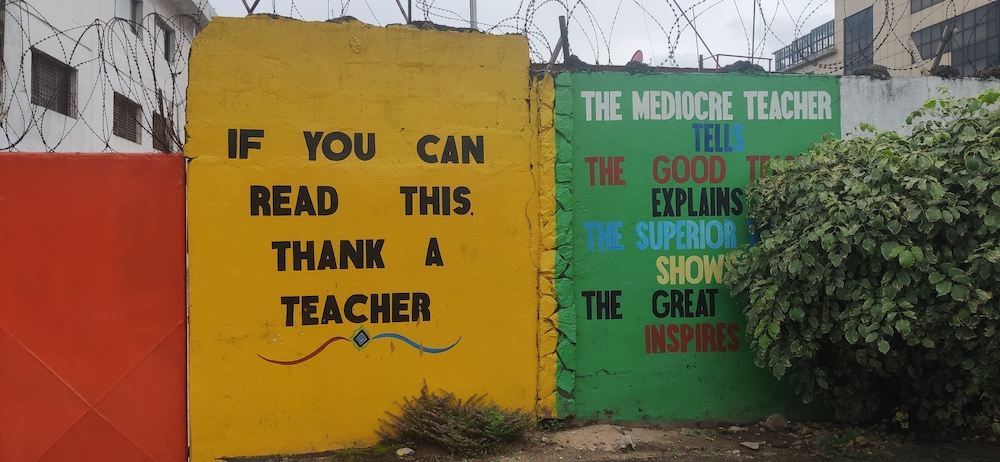 IF YOU CAN
READ THIS.
THANK A
TEACHER
THE MEDIOCRE TEACHER
TELLS
THE GOOD
EXPLAINS
THE SUPERIOR
SHOWS
THE GREAT
INSPIRES